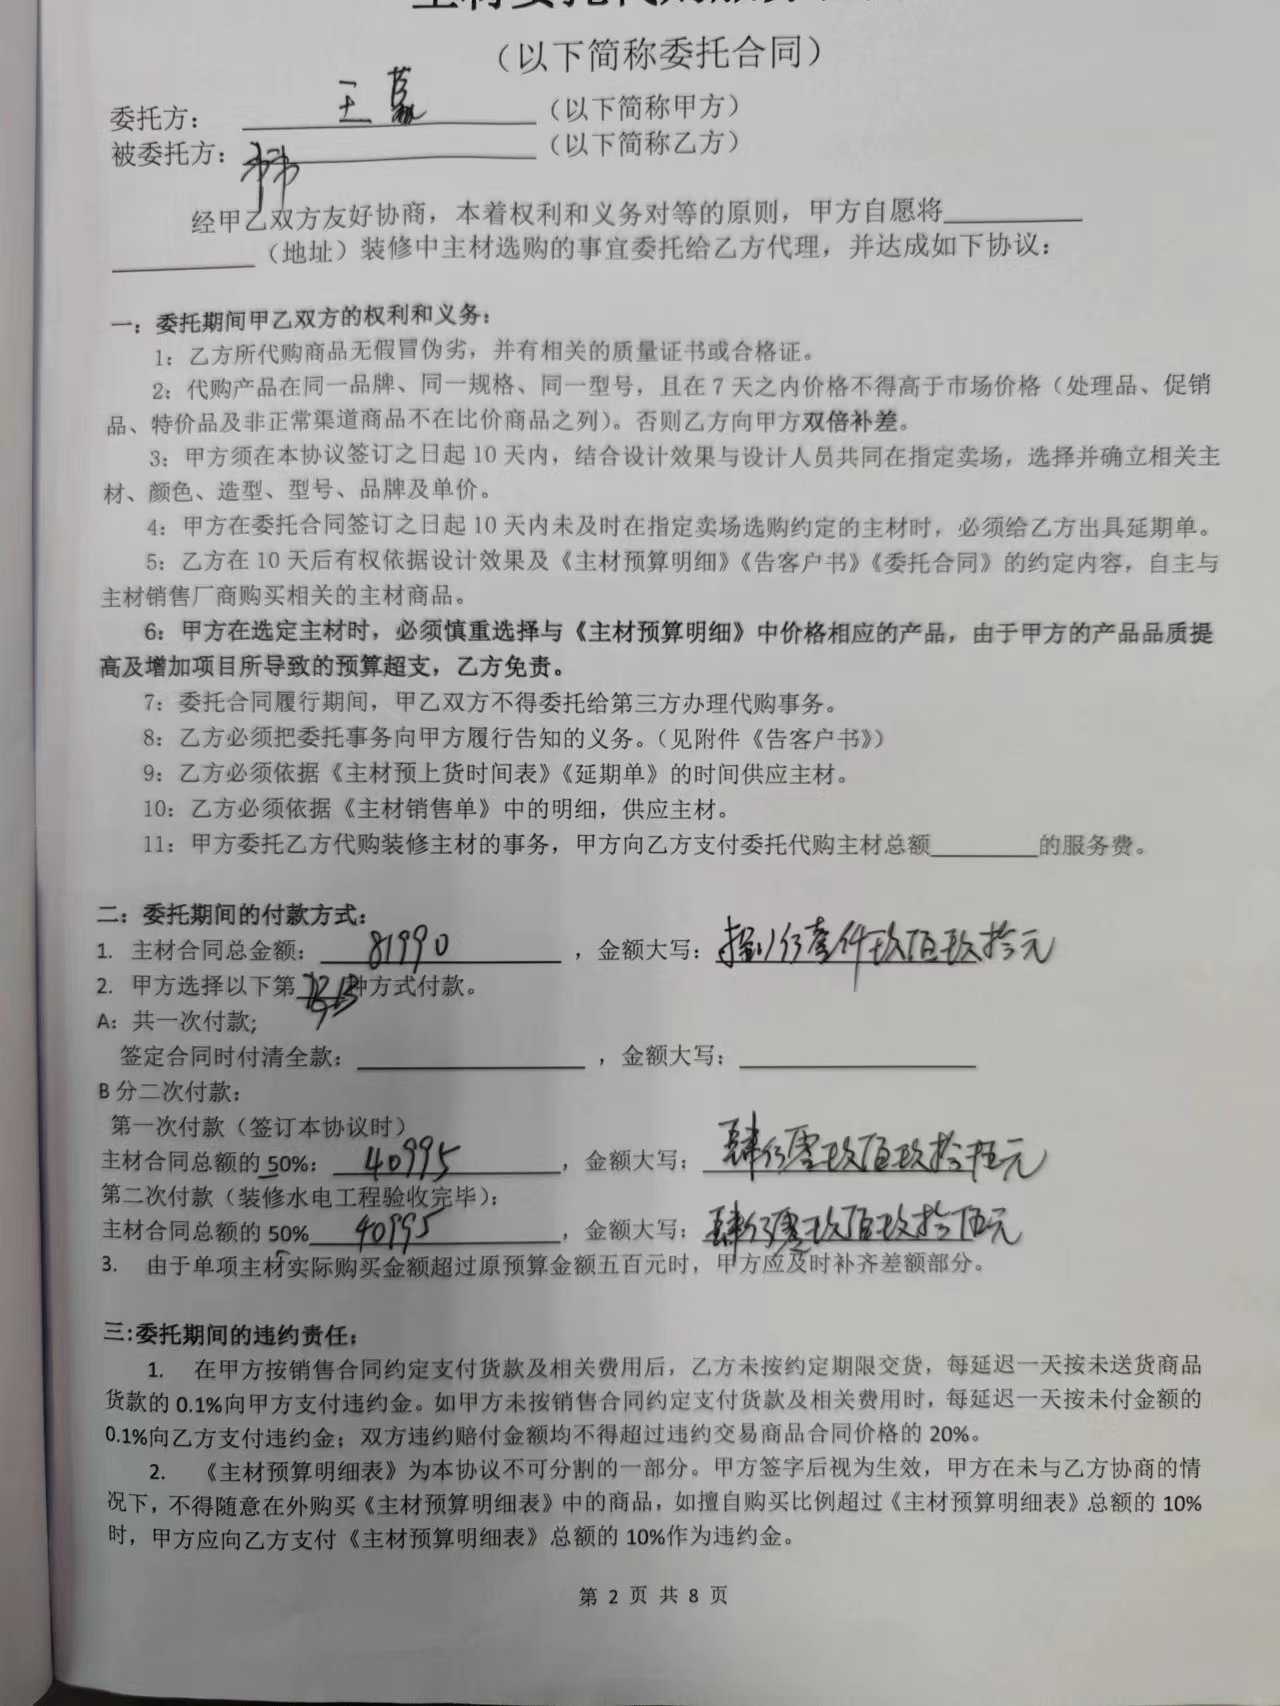 （以下简称委托合同）
委托方： 王 （以下简称甲方）
被委托方： （以下简称乙方）
经甲乙双方友好协商，本着权利和义务对等的原则，甲方自愿将
（地址）装修中主材选购的事宜委托给乙方代理，并达成如下协议：
一：委托期间甲乙双方的权利和义务：
1：乙方所代购商品无假冒伪劣，并有相关的质量证书或合格证。
2：代购产品在同一品牌、同一规格、同一型号，且在 7 天之内价格不得高于市场价格（处理品、促销
品、特价品及非正常渠道商品不在比价商品之列）。否则乙方向甲方双倍补差。
3：甲方须在本协议签订之日起 10 天内，结合设计效果与设计人员共同在指定卖场，选择并确立相关主
材、颜色、造型、型号、品牌及单价。
4：甲方在委托合同签订之日起 10 天内未及时在指定卖场选购约定的主材时，必须给乙方出具延期单。
5：乙方在 10 天后有权依据设计效果及《主材预算明细》《告客户书》《委托合同》的约定内容，自主与
主材销售厂商购买相关的主材商品。
6：甲方在选定主材时，必须慎重选择与《主材预算明细》中价格相应的产品，由于甲方的产品品质提
高及增加项目所导致的预算超支，乙方免责。
7：委托合同履行期间，甲乙双方不得委托给第三方办理代购事务。
8：乙方必须把委托事务向甲方履行告知的义务。（见附件《告客户书》）
9：乙方必须依据《主材预上货时间表》《延期单》的时间供应主材。
10：乙方必须依据《主材销售单》中的明细，供应主材。
11：甲方委托乙方代购装修主材的事务，甲方向乙方支付委托代购主材总额 的服务费。
二：委托期间的付款方式：
1. 主材合同总金额： 81990 ，金额大写： 捌 壹仟玖佰玖拾元
2. 甲方选择以下第 种方式付款。
A：共一次付款;
签定合同时付清全款： ，金额大写：
B 分二次付款：
第一次付款（签订本协议时）
主材合同总额的 50%： 40995 ，金额大写： 肆 零玖佰玖拾伍元
第二次付款（装修水电工程验收完毕）：
主材合同总额的 50% 40995 ，金额大写： 肆 零玖佰玖拾伍元
3. 由于单项主材实际购买金额超过原预算金额五百元时，甲方应及时补齐差额部分。
三:委托期间的违约责任：
1. 在甲方按销售合同约定支付货款及相关费用后，乙方未按约定期限交货，每延迟一天按未送货商品
货款的 0.1%向甲方支付违约金。如甲方未按销售合同约定支付货款及相关费用时，每延迟一天按未付金额的
0.1%向乙方支付违约金；双方违约赔付金额均不得超过违约交易商品合同价格的 20%。
2. 《主材预算明细表》为本协议不可分割的一部分。甲方签字后视为生效，甲方在未与乙方协商的情
况下，不得随意在外购买《主材预算明细表》中的商品，如擅自购买比例超过《主材预算明细表》总额的 10%
时，甲方应向乙方支付《主材预算明细表》总额的 10%作为违约金。
第 2 页 共 8 页